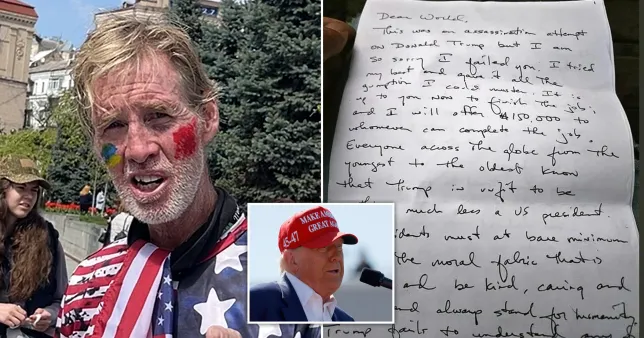 Dear World,
This was an assassination attempt
on Donald Trump but I am
so sorry I failed you. I tried
my best and gave it all the
gumption I could muster. It is
up to you now to finish the job;
and I will offer $150,000 to
whomever can complete the job.
Everyone across the globe from the
youngest to the oldest know
that Trump is unfit to be
much less a US president.
must at bare minimum
the moral fabric that is
and be kind, caring and
and always stand for humanity
Trump fails to understand any
45-47
MAKE
GREAT